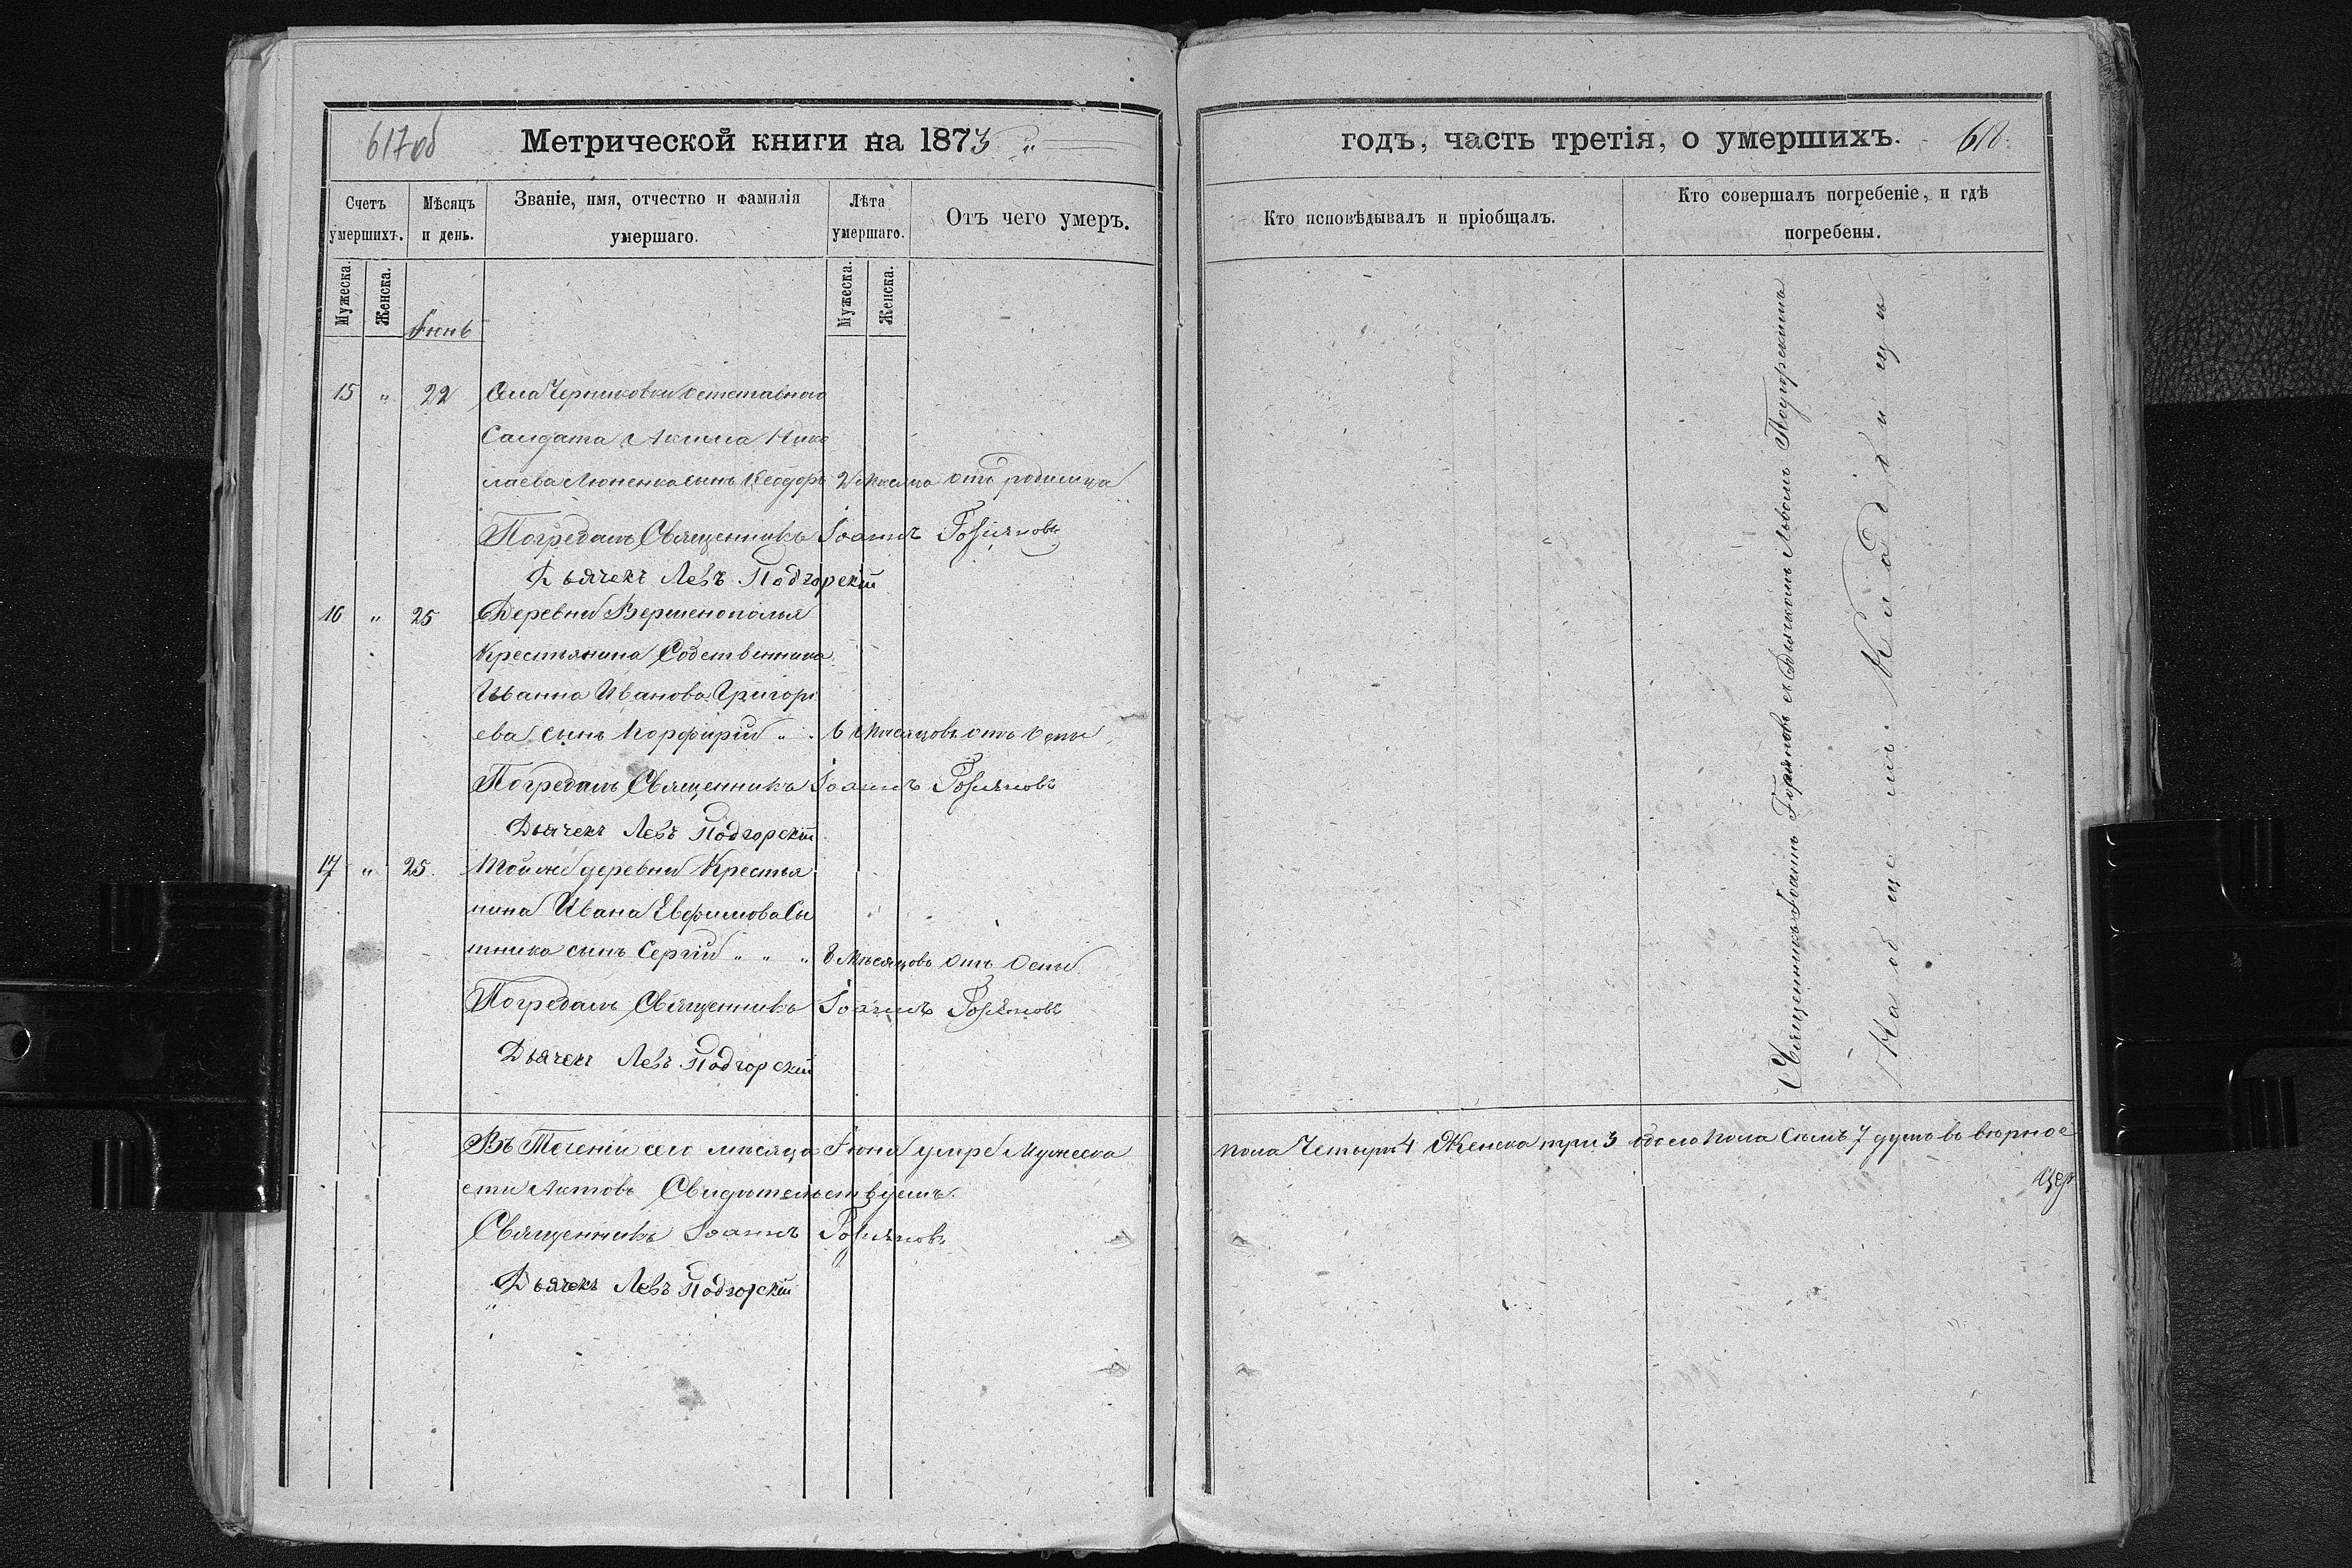 617об
Метрической книги на 1873 "
Счетъ умершихъ.
Мѣсяцъ и день.
Званіе, имя, отчество и фамилія
умершаго.
Лѣта умершаго.
Отъ чего умеръ.
Мужеска.
Женска.
Мужеска.
Женска.
Іюнь
15 " 22 Села
Салдата Нико
лаева сынъ Ѳеодоръ 2 мѣсяца отъ родимца
Погребалъ Священникъ Іоаннъ
Дьячекъ Левъ Подгорскій
16 " 25 Деревни Вершенополья
Крестьянина Собственника
Иванна Иванова Григорь
ева сынъ Порфирій " 6 мѣсяцовъ отъ Оспы
Погребалъ Священникъ Іоаннъ
Дьячекъ Левъ Подгорскій
17 " 25 Той же деревни Крестья
нина Ивана Евфимова Сы
тника сынъ Сергій " " " 8 мѣсяцовъ отъ Оспы
Погребалъ Священникъ Іоаннъ
Дьячекъ Левъ Подгорскій
Въ Теченіи сего мѣсяца Іюня умре Мужеска
сти Актовъ Свидѣтельствуемъ.
Священникъ Іоаннъ
Дьячекъ Левъ Подгорскій
годъ, часть третія, о умершихъ.
618.
Кто исповѣдывалъ и пріобщалъ.
Кто совершалъ погребеніе, и гдѣ
погребены.
Священникъ Іоаннъ съ Дьячкомъ Львомъ Подгорскимъ
На общемъ Кладбищи
пола Четыри 4 Женска три 3 обоего пола Семъ 7 душъ въ вѣрное